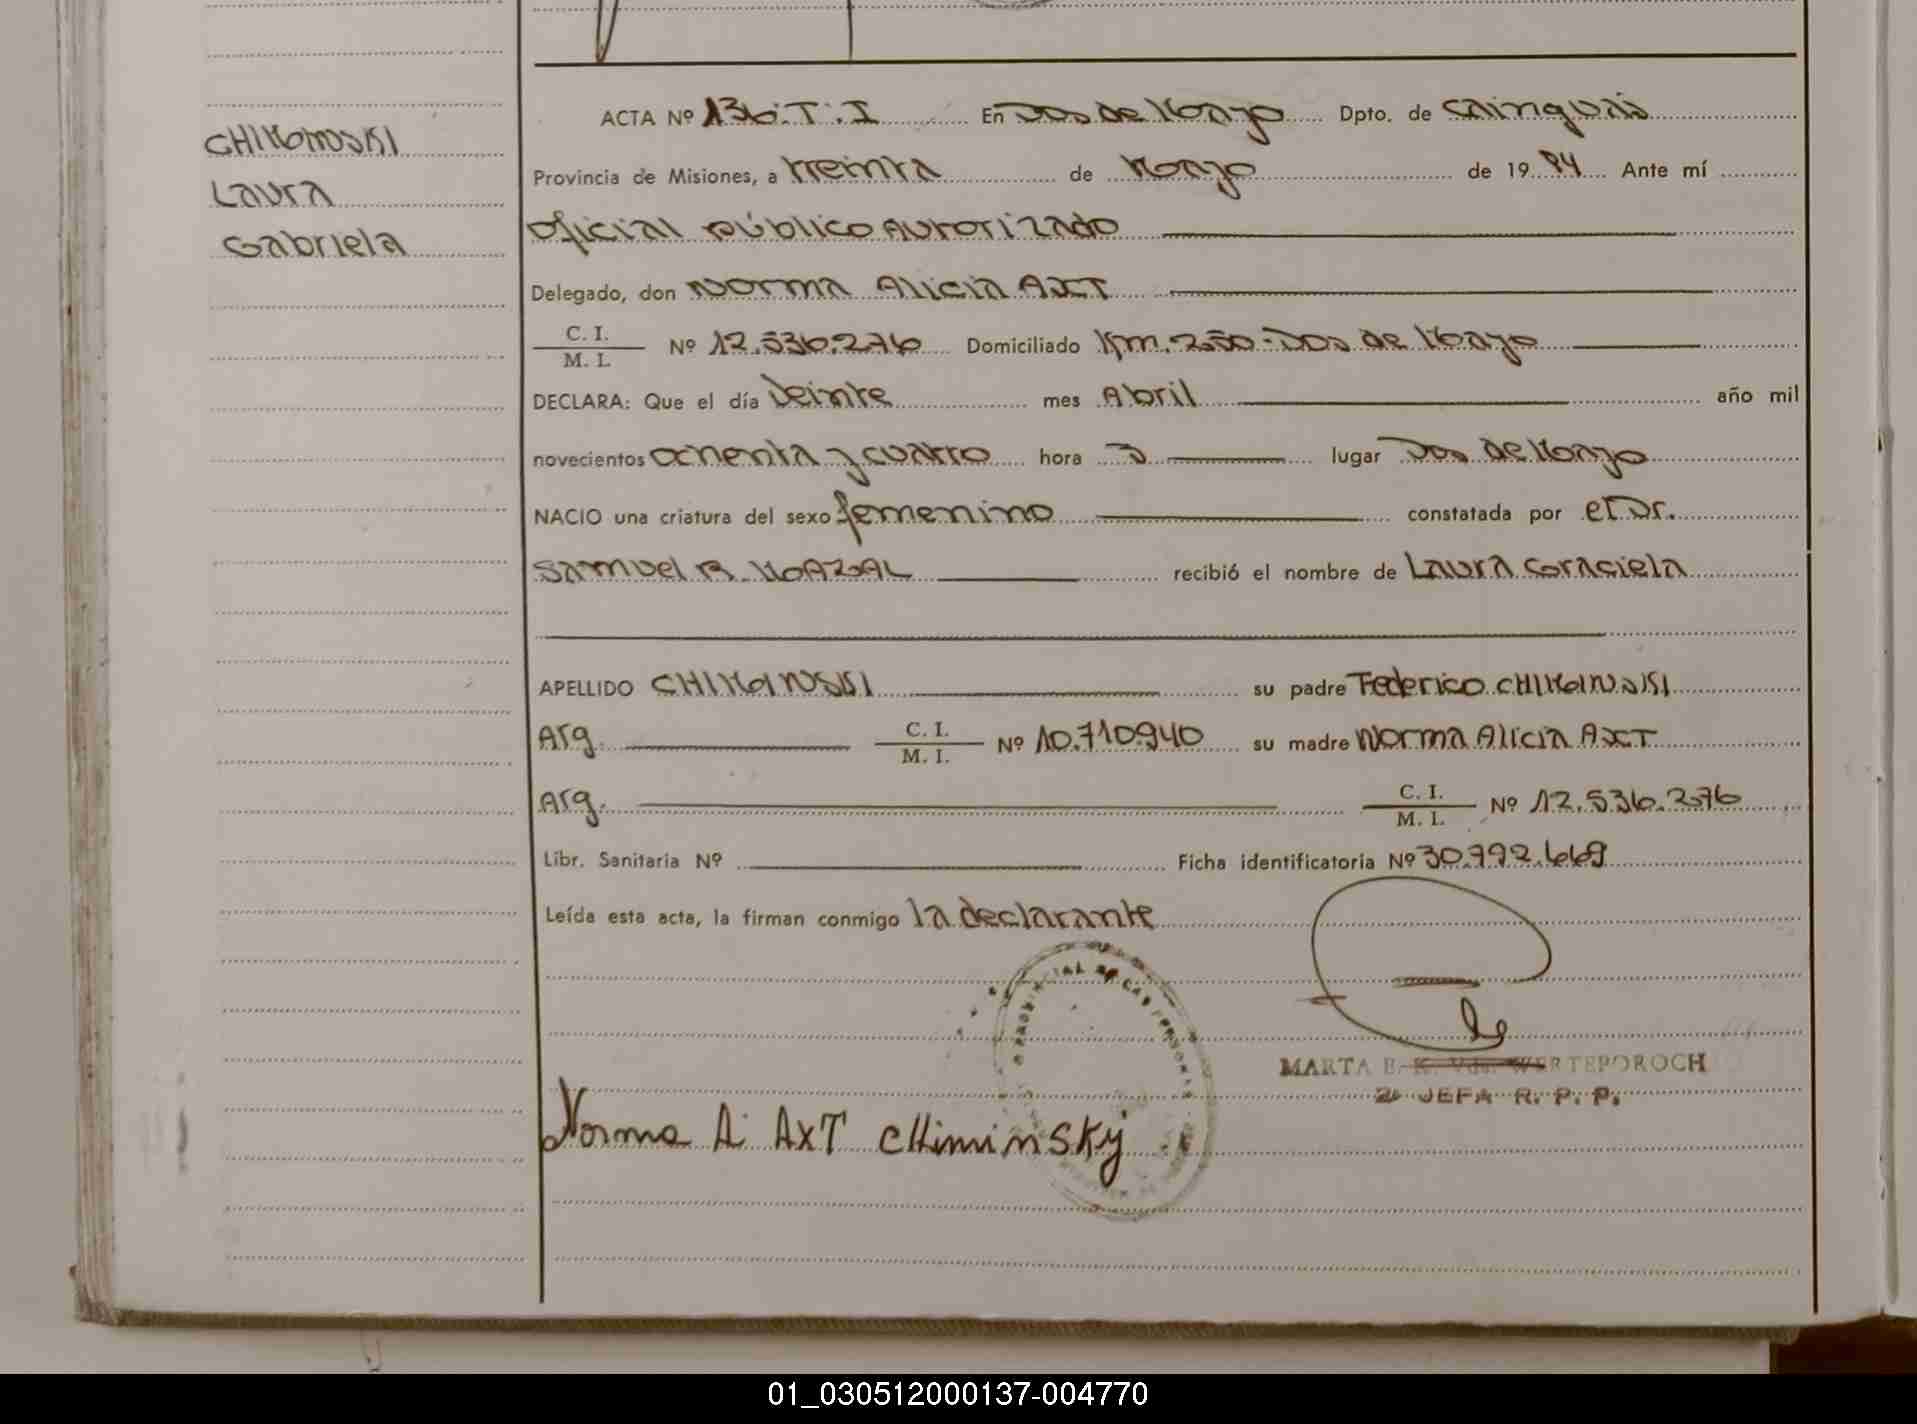 CHIMINSKI
Laura
Gabriela
ACTA Nº 136.T.I En Dos de Mayo Dpto. de Cainguás
Provincia de Misiones, a treinta de Mayo de 1984 Ante mí
Oficial público Autorizado
Delegado, don Norma Alicia AXT
C. I.
M. I. Nº 12.536.276 Domiciliado Km. 250-Dos de Mayo
DECLARA: Que el día Veinte mes Abril año mil
novecientos ochenta y cuatro hora 3 lugar Dos de Mayo
NACIO una criatura del sexo femenino constatada por el Dr.
Samuel R. MOAZAL recibió el nombre de Laura Graciela
APELLIDO CHIMINSKI su padre Federico CHIMINSKI
Arg. C. I.
M. I. Nº 10.710.940 su madre Norma Alicia AXT
Arg. C. I.
M. I. Nº 12.536.276
Libr. Sanitaria Nº Ficha identificatoria Nº 30.792.669
Leída esta acta, la firman conmigo la declarante
MARTA E. K. Vda. WERTEPOROCH
2ª JEFA R. P. P.
Norma A AXT CHiminsky
01_030512000137-004770